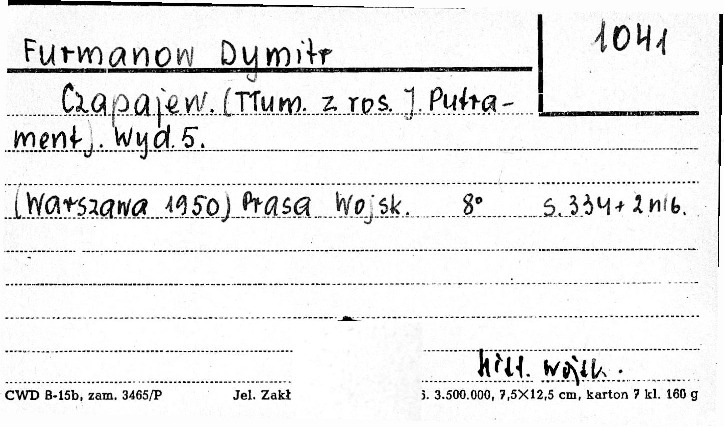 1041
Furmanow Dymitr
Czapajew. (Tłum. z ros. J. Putra-
ment). Wyd. 5.
(Warszawa 1950) Prasa Wojsk. 8° s. 334 + 2 nlb.
hist. wojsk.
CWD B-15b, zam. 3465/P Jel. Zakł 3. 3.500.000, 7,5×12,5 cm, karton 7 kl. 160 g